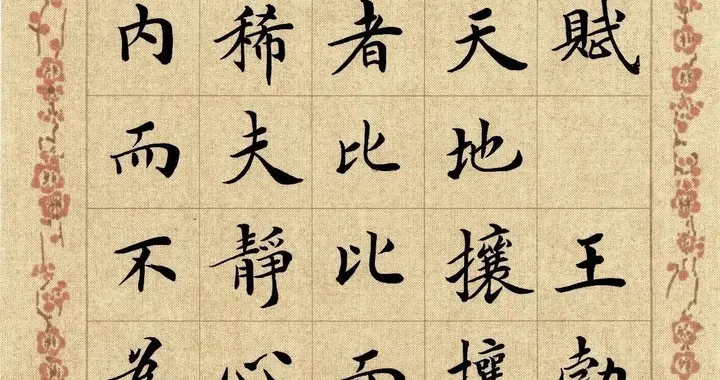 賦 王勃
天地攘攘
者比比而
稀夫靜心
内而不